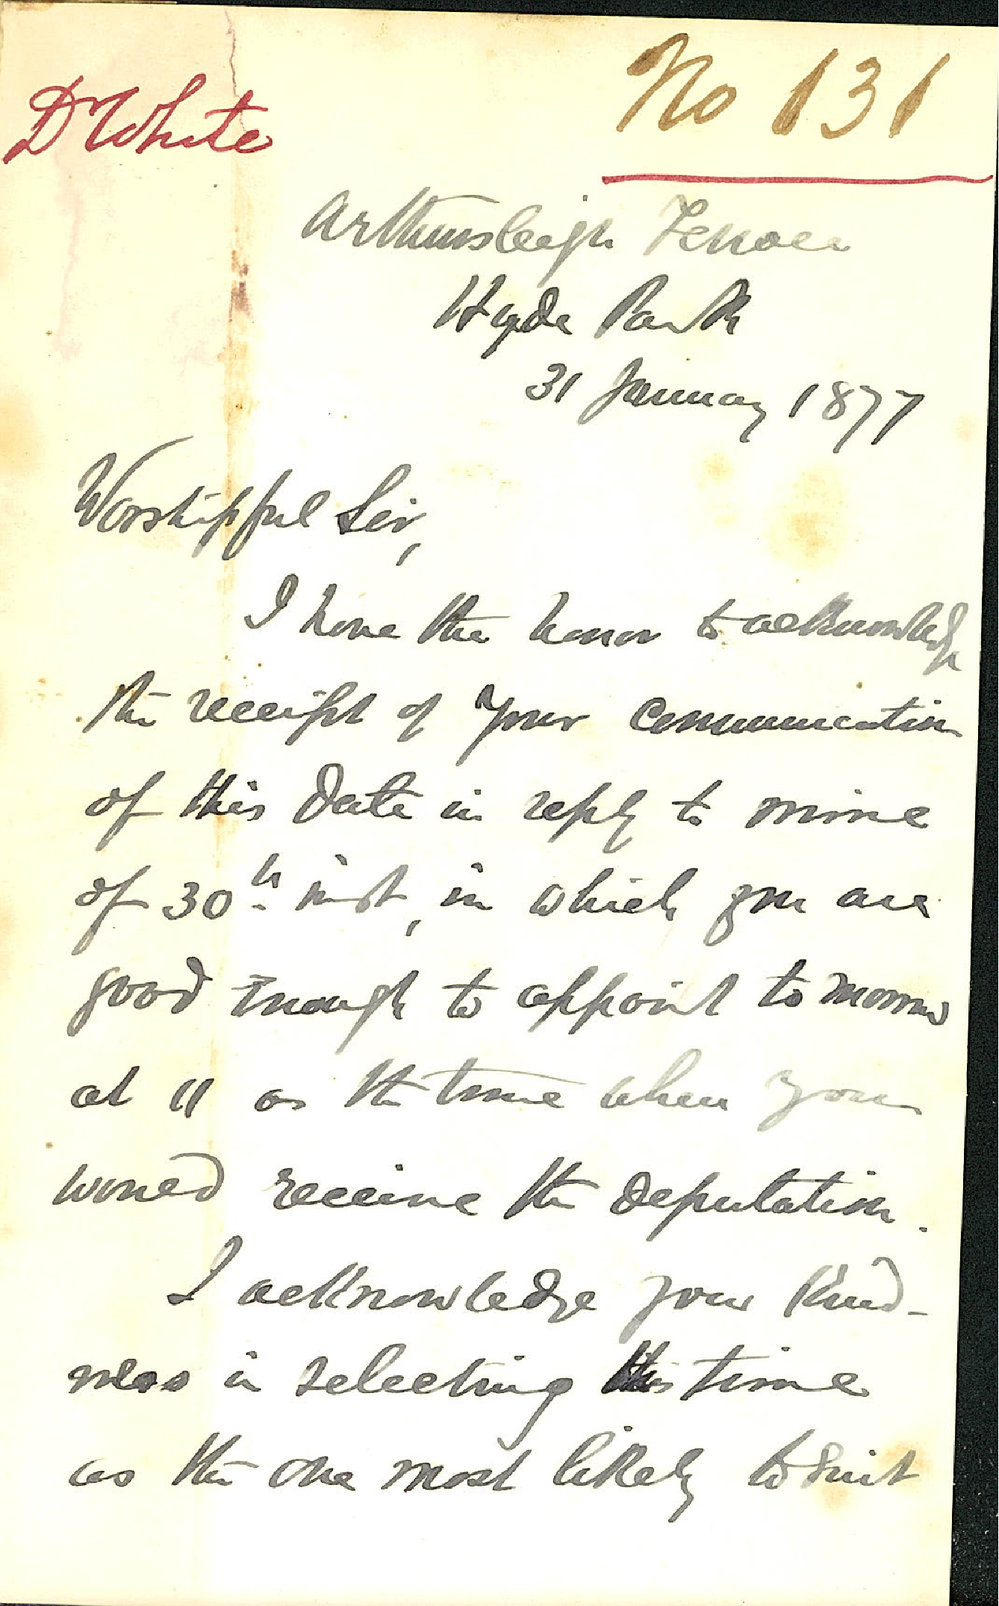 Dr White
No 131
Arthursleigh Terrace
Hyde Park
31 January 1877
Worshipful Sir,
I have the honor to acknowledge
the receipt of your communication
of this date in reply to mine
of 30th inst, in which you are
good enough to appoint to morrow
at 11 as the time when you
would receive the deputation.
I acknowledge your kind-
ness in selecting this time
as the one most likely to suit